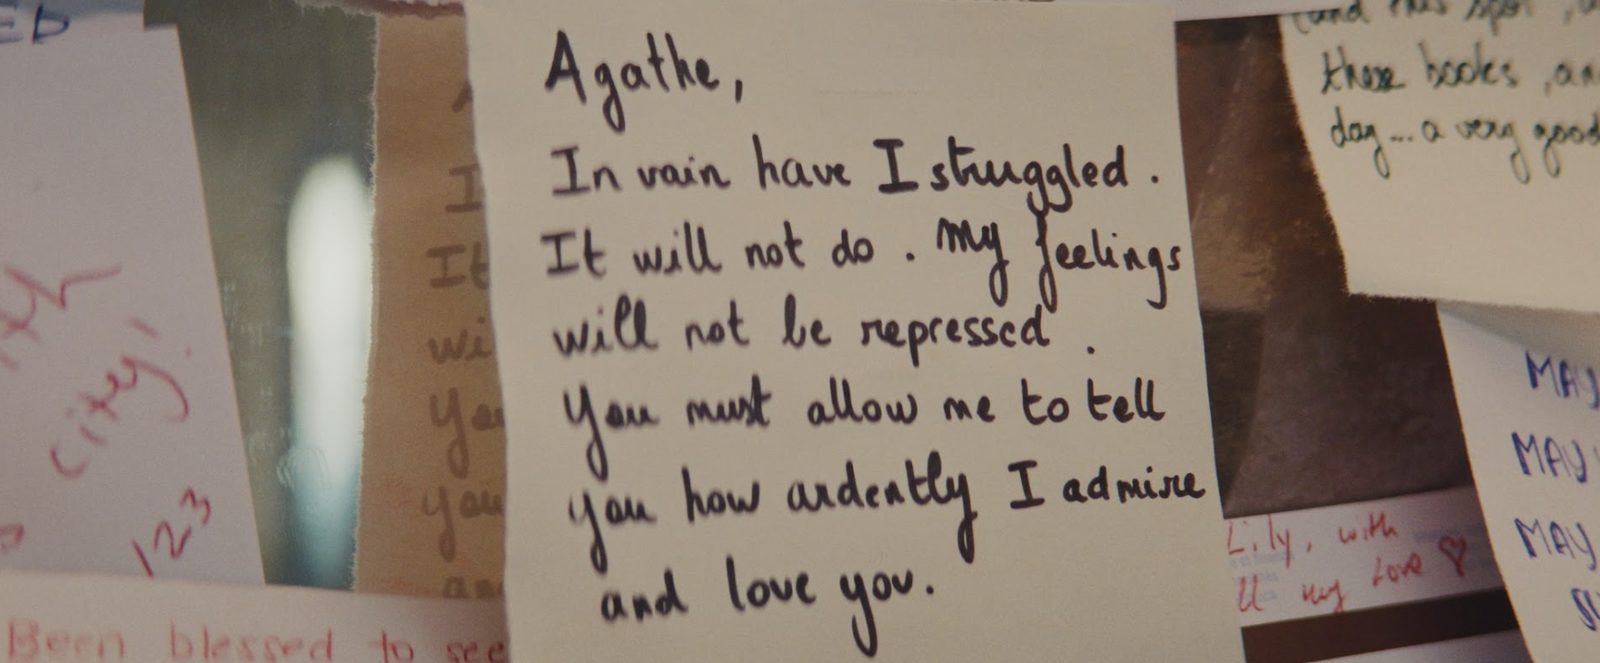 Agathe,
In vain have I struggled.
It will not do. My feelings
will not be repressed.
You must allow me to tell
you how ardently I admire
and love you.
ED
city!
123
Been blessed to see
these books, an
day... a very good
MAY
MAY
MAY
Lily, with
ll my Love ♡